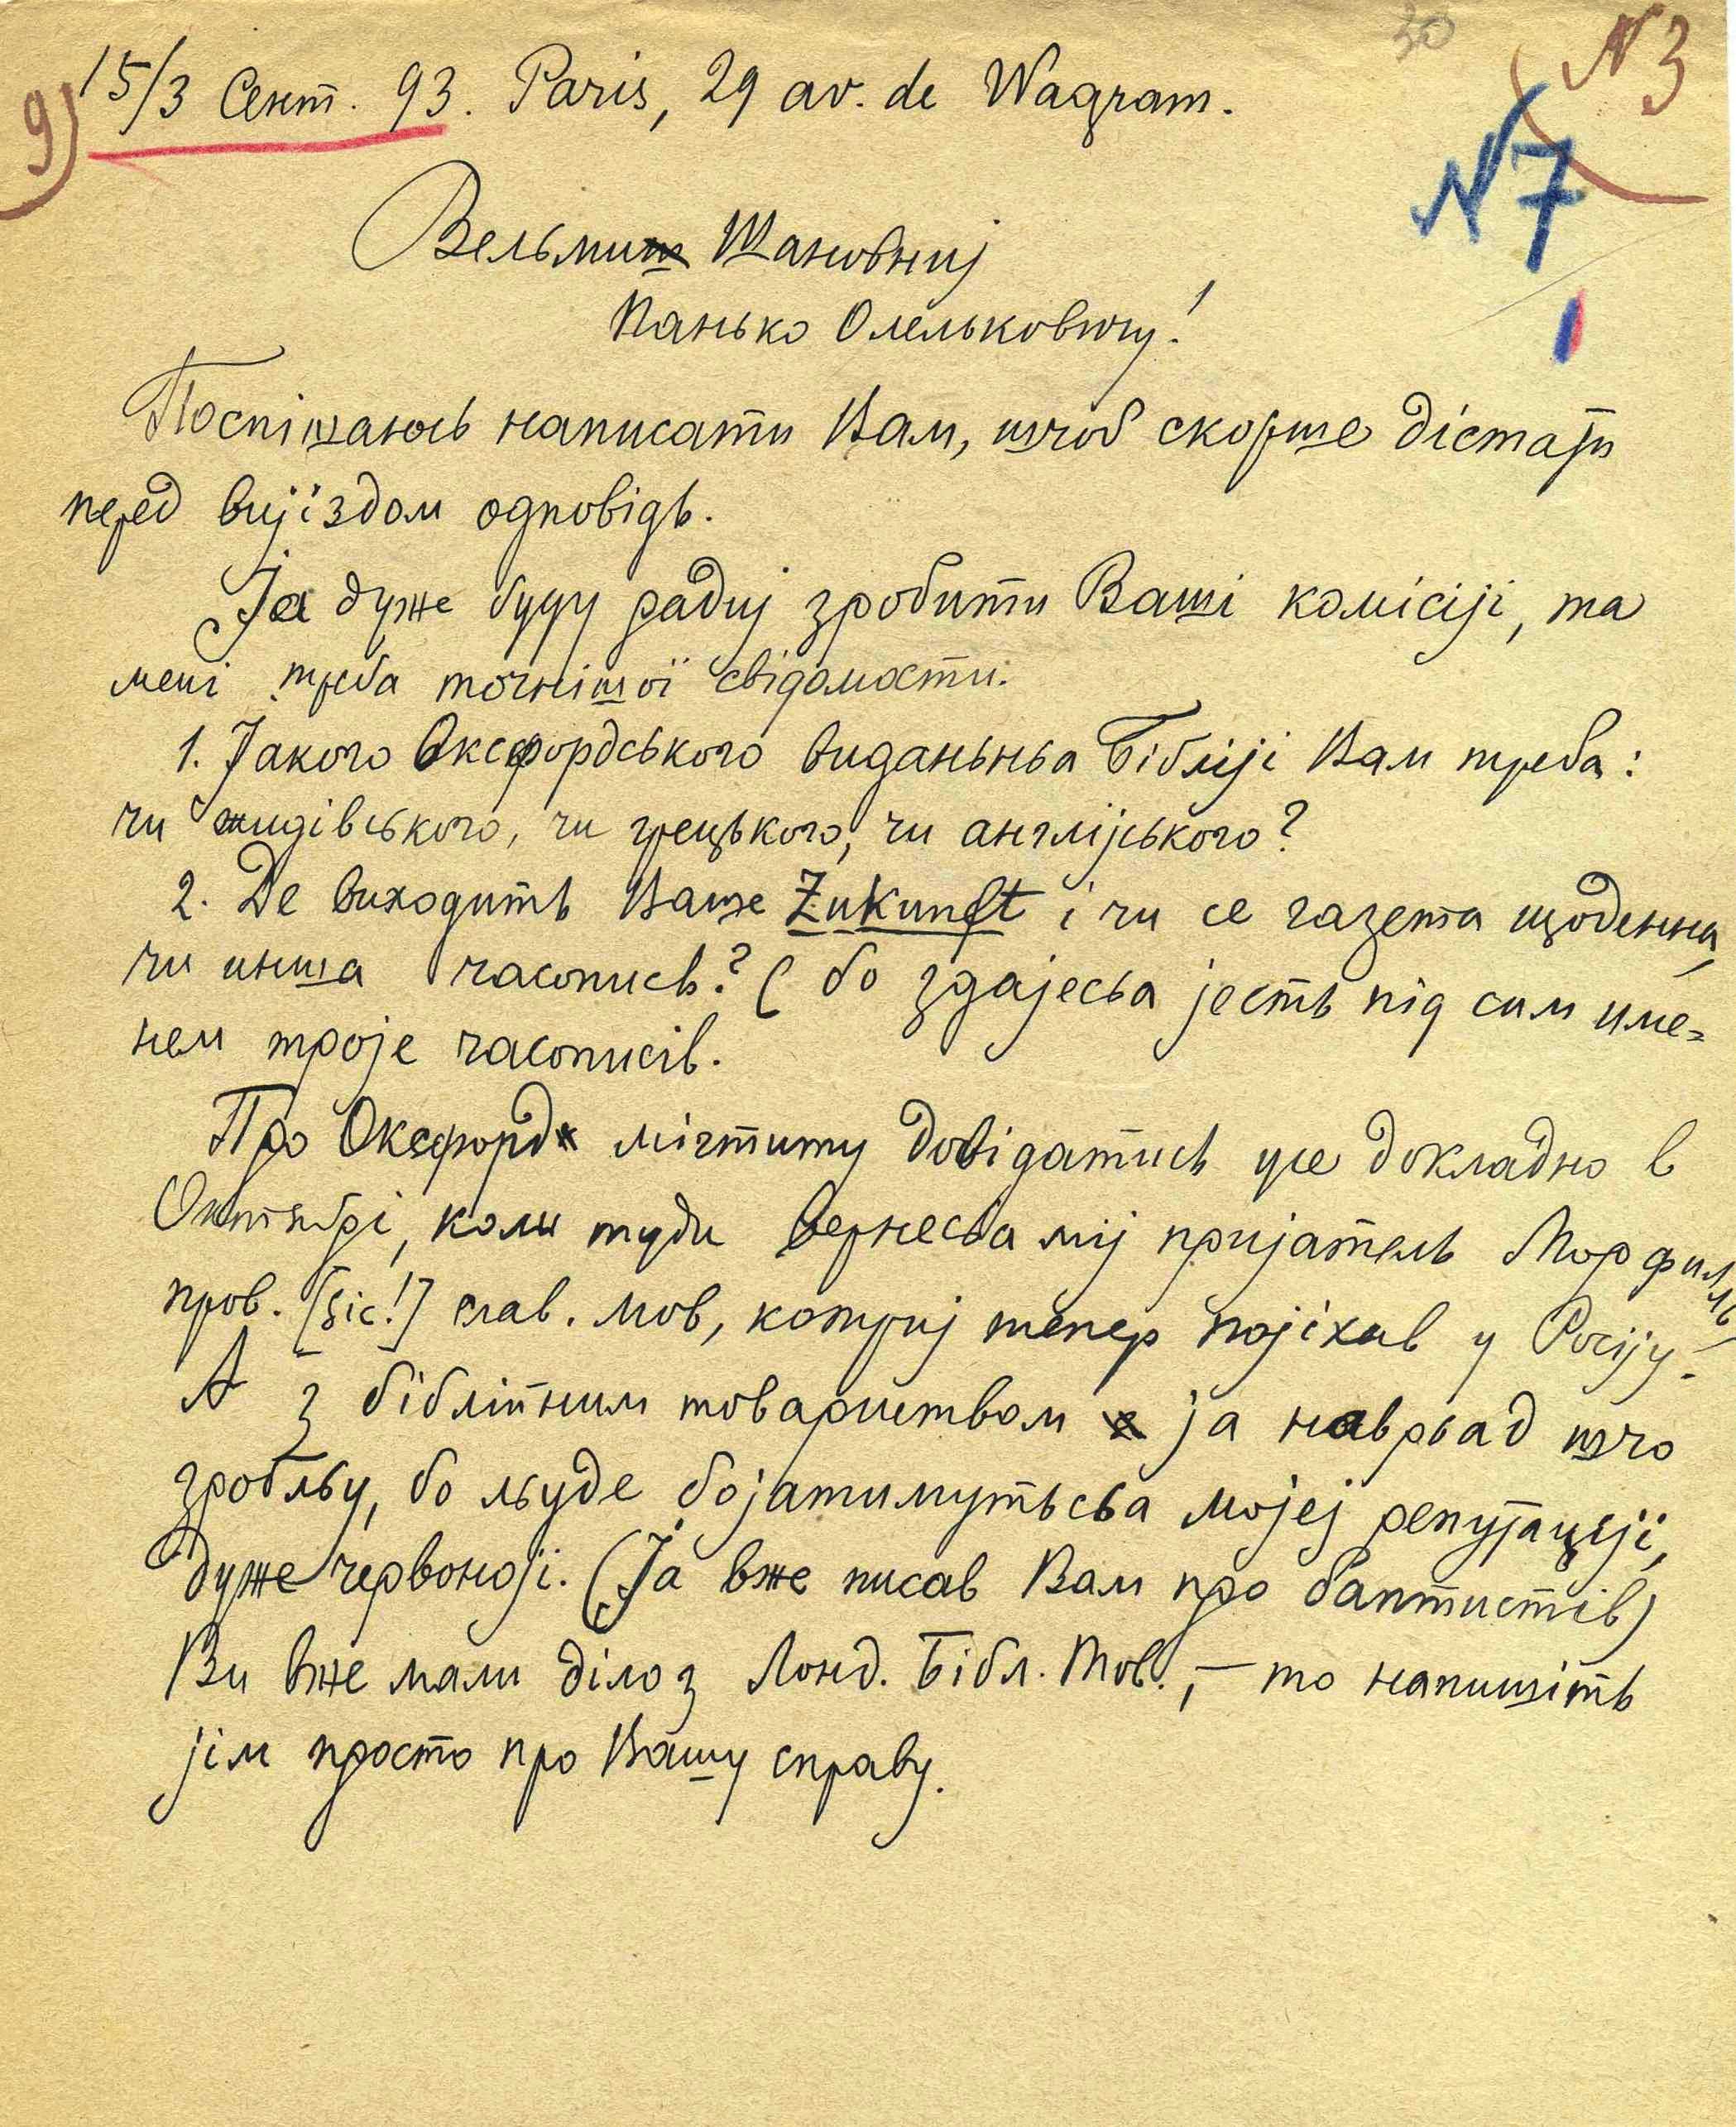 30
N 3
9) 15/3 Сент. 93. Paris, 29 av. de Wagram.
N 7
Вельми Шановниј
Панько Олельковичу!
Поспішаюсь написати Вам, шчоб скорше дістати
перед вијіздом одповідь.
Ја дуже буду радиј зробити Ваші комісіјі, та
мені треба точнішої свідомости:
1. Јакого Оксфордського виданьньа Бібліјі Вам треба:
чи жидівського, чи грецького, чи англіјського?
2. Де виходить Ваше Zukunft і чи се газета щоденна,
чи инша часопись? (бо здајесьа јесть під сим име=
нем троје часописів.
Про Оксфорд мігтиму довідатись уже докладно в
Октябрі, коли туди вернесьа міј пријатель Морфилль,
пров. [sic!] слав. мов, котриј тепер појіхав у Росіју.
А з біблітним товариством ја наврьад шчо
зробльу, бо льуде бојатимутьсьа мојеј репутаціјі,
дуже червоној­і. (Ја вже писав Вам про баптистів)
Ви вже мали діло з Лонд. Бібл. Тов., — то напишіть
јім просто про Вашу справу.